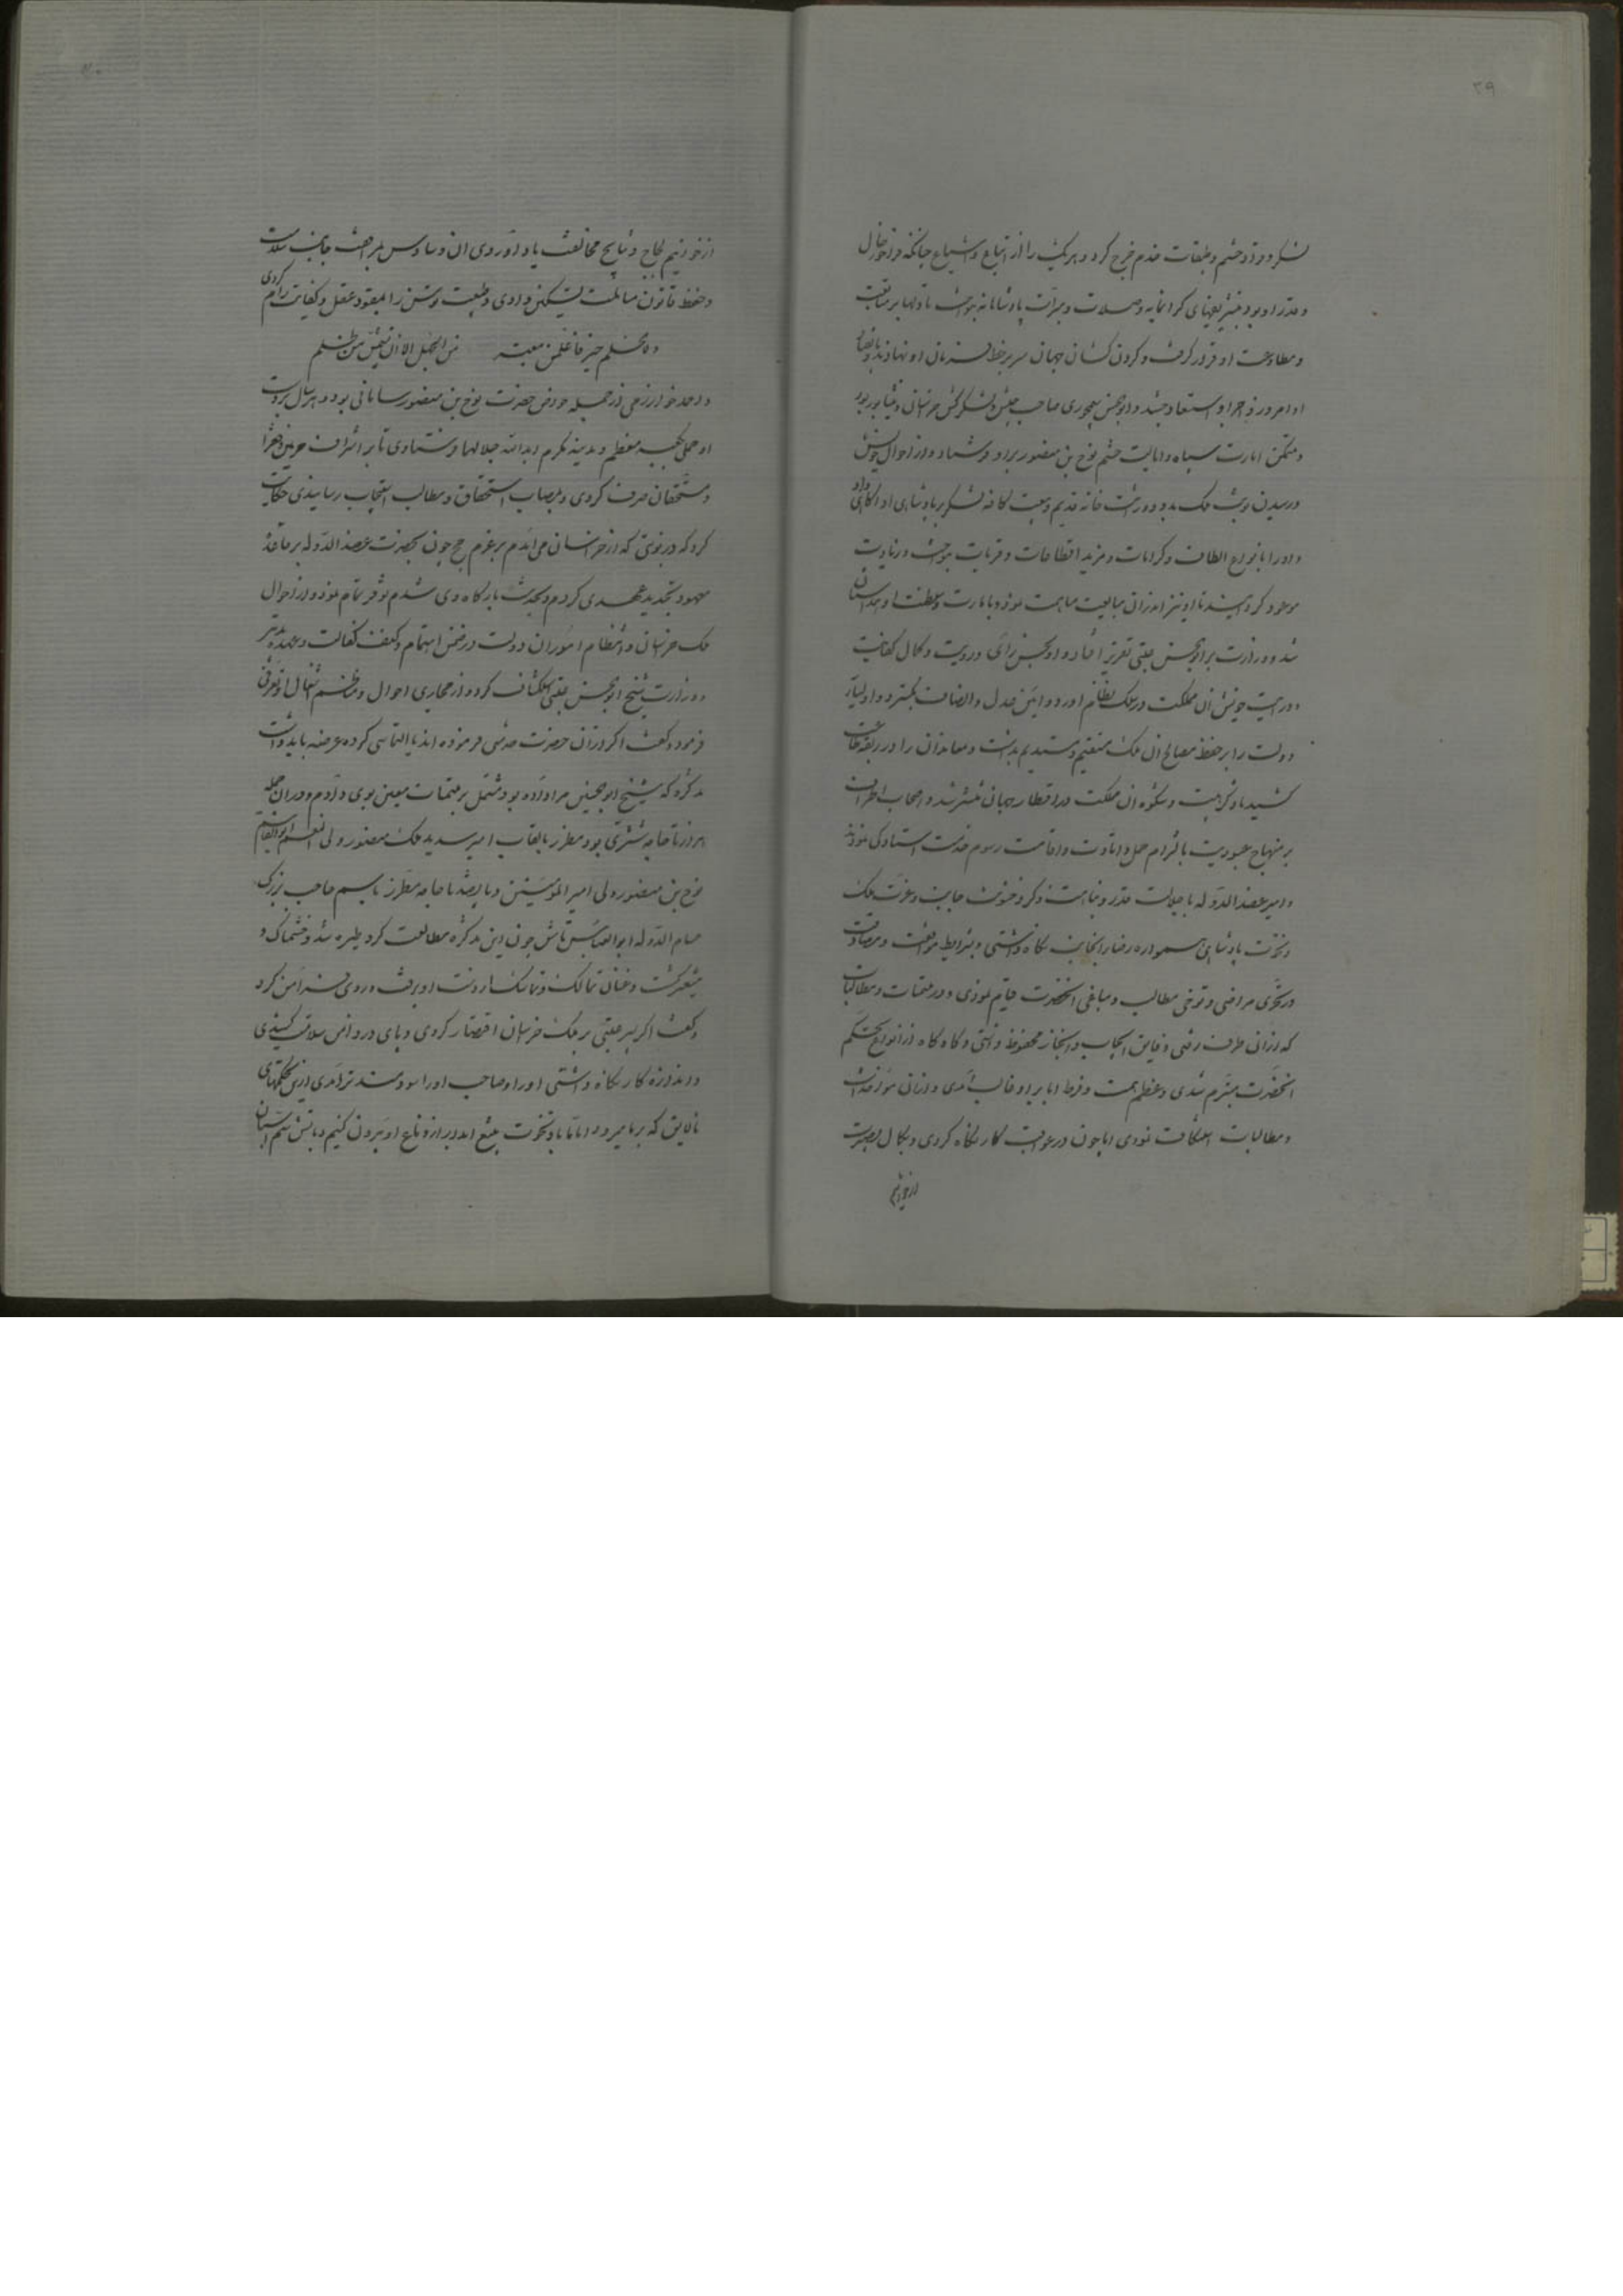 ۳۹
لشکر و قواد حشم و طبقات خدم خرج کرد و هر یک را از اتباع و اشیاع چنانکه فراخور حال
و قدر او بود بتشریفهای کرانمایه و صلات و مبرات پادشاهانه بنواخت تا دلها بر متابعت
و مطاوعت او قرار کرفت و کردن کشان جهان سر بر خط فرمان او نهادند
او امر و زواجر او استعداد جستند و ابوالحسن سیمجوری صاحب جیش و لشکرکش خراسان و نیشابور بود
و متمکن امارت سپاه و ایالت حشم نوح بن منصور برادر فرستاد و از احوال خویش
و رسیدن نوبت ملک بدو و وراثت خانه قدیم و بیعت کافه لشکر بر پادشاهی او آکاهی داد
و او را بانواع الطاف و کرامات و مزید اقطاعات و قربات بنواخت و زیادت
موعود کردانیدند تا او نیز اندران مبایعت مساهمت نمود و بامارت و سلطنت او همداستان
شد و وزارت بر ابوالحسن عتبی تقریر افتاد و او بحسن رای و رویت و کمال کفایت
و درایت خویش آن مملکت در سلک نظام آورد و آیین عدل و انصاف بکسترد و اولیاء
دولت را بر حفظ مصالح آن ملک مستقیم و مستدیم بداشت و معاندان را در ربقه طاعت
کشید تا ذکر هیبت و شکوه آن مملکت در اقطار جهان منتشر شد و اصحاب اطراف
بر منهاج عبودیت بالتزام حمل و اتاوت و اقامت رسوم خدمت ایستادکی نمودند
و امیر عضد الدوله با جلالت قدر و نباهت ذکر و خشونت جانب و عزت ملک
و نخوت پادشاهی همواره رضاء انجانب نکاه داشتی و بشرایط موافقت و مصادقت
در تحری مراضی و توخی مطالب و مباغی آنحضرت قیام نمودی و در ملتمسات و مطالبات
که از آن طرف رفتی دقایق ایجاب و انجاز محفوظ داشتی و کاه کاه از انواع تحکم
آنحضرت متبرم شدی و عظم همت و فرط ابا بر او غالب آمدی و از آن مؤاخذات
و مطالبات استنکاف نمودی اما چون در عواقب کار نکاه کردی و بکمال بصیرت
از خواتیم
از خواتیم لجاج و نتایج مخالفت یاد آوردی آن وساوس بمراجعت جانب سلامت
و حفظ قانون مسالمت تسکین دادی و طبیعت توسن را بمقود عقل و کفایت رام کردی
و للحلم خیر فاعلمن مغبة من الجهل الا ان تشمس من ظلم
و احمد خوارزمی از جمله خواص حضرت نوح بن منصور سامانی بود و هر سال بر دست
او حملی بکعبه معظم و مدینه مکرم ابد الله جلالهما فرستادی تا بر اشراف حرمین و فقرا
و مستحقان صرف کردی و بنصاب استحقاق و مطالب ایجاب رسانیدی حکایت
کرد که در نوبتی که از خراسان می آمدم بر عزم حج چون بحضرت عضد الدوله بر قاعده
معهود تجدید عهدی کردم و بخدمت بارکاه وی شدم توقر تمام نمود و از احوال
ملک خراسان و انتظام امور آن دولت در ضمن اهتمام و کنف کفالت و عهده تدبیر
و وزارت شیخ ابوالحسن عتبی استکشاف کرد و از مجاری احوال و مناظم اشغال او تعرفی
فرمود و کفت اکر از آن حضرت مهمی فرموده اند یا التماسی کرده عرضه باید داشت
تذکره که شیخ ابوالحسین مرا داده بود مشتمل بر ملتمسات معین بوی دادم و در آن جمله
هزار تا جامه شتری بود مطرز بالقاب امیر سدید ملک منصور ولی النعم ابوالقاسم
نوح بن منصور ولی امیر المؤمنین و پانصد تا جامه مطرز باسم حاجب بزرک
حسام الدوله ابوالعباس تاش چون این تذکره مطالعت کرد طیره شد و خشمناک و
متغیر کشت و عنان تمالک و تماسک از دست او برفت و روی بمن کرد
و کفت اکر پسر عتبی بر ملک خراسان اقتصار کردی و پای در دامن سلامت کشیدی
و اندازه کار نکاه داشتی او را و صاحب او را سودمندتر آمدی ازین تحکمهای
نالایق که بر ما میرود اما ما باد نخوت بتیغ آبدار از دماغ او بیرون کنیم و باتش سم اسبان